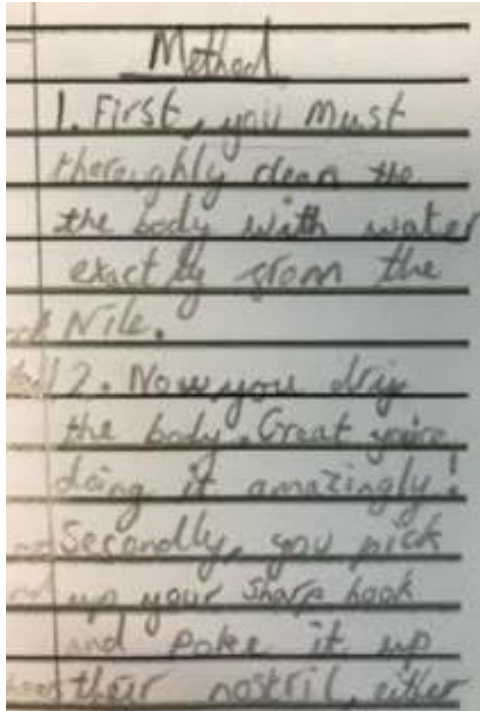 Method
1. First, you must
thoroughly clean the
the body with water
exactly from the
Nile.
2. Now you dry
the body. Great you're
doing it amazingly!
Secondly, you pick
up your sharp hook
and poke it up
their nostril, either